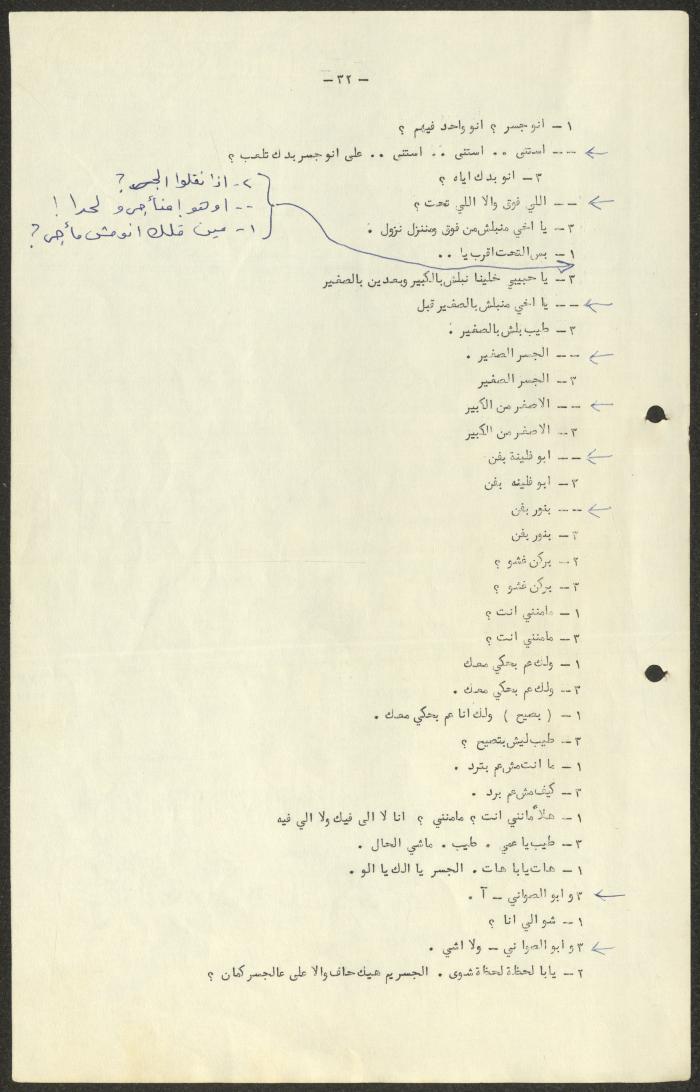 - ٣٢ -
١ - انو جسر ؟ انو واحد فيهم ؟
--- استنى .. استنى .. استنى .. على انو جسر بدك تلعب ؟
٣ - انو بدك اياه ؟
٢- اذا نقلوا الجسر؟
--- اللي فوق والا اللي تحت ؟
-- او هو إمنأجر و لحدا !
٣- يا اخي منبلش من فوق ومننزل نزول .
١- مين قلك انو مش مأجر؟
١- بس التحت اقرب يا ..
٣- يا حبيبي خلينا نبلش بالكبير وبعدين بالصغير
--- يا اخي منبلش بالصغير قبل
٣- طيب بلش بالصغير .
--- الجسر الصغير .
٣- الجسر الصغير
--- الاصغر من الكبير
٣-- الاصغر من الكبير
--- ابو فلينة بفن
٣- ابو فلينه بفن
--- بنور بفن
٣- بنور بفن
٢- بركن غشو ؟
٣- بركن غشو ؟
١- مامنني انت ؟
٣- مامنني انت ؟
١- ولك عم بحكي معك
٣-- ولك عم بحكي معك .
١- ( بصيح ) ولك انا عم بحكي معك .
٣- طيب ليش بتصيح ؟
١- ما انت مش عم بترد .
٣- كيف مش عم برد .
١- هلأ مانني انت ؟ مامنني ؟ انا لا الى فيك ولا الي فيه
٣- طيب يا عمي . طيب . ماشي الحال .
١- هات يابا هات . الجسر يا الك يا الو .
٣ و ابو الصواني - آ .
١-- شو الي انا ؟
٣ و ابو الصواني -- ولا اشي .
٢- يابا لحظة لحظة شوى . الجسر يم هيك حاف والا على عالجسر كمان ؟